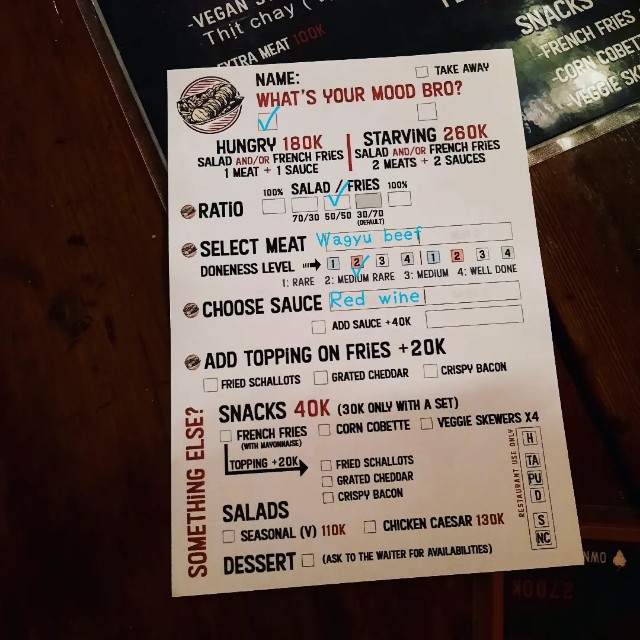 -VEGAN S
Thịt chay (
EXTRA MEAT 100K
SNACKS
-FRENCH FRIES
-CORN COBETT
-VEGGIE SKEW
NAME:
TAKE AWAY
WHAT'S YOUR MOOD BRO?
HUNGRY 180K
SALAD AND/OR FRENCH FRIES
1 MEAT + 1 SAUCE
STARVING 260K
SALAD AND/OR FRENCH FRIES
2 MEATS + 2 SAUCES
RATIO
100% SALAD / FRIES 100%
70/30 50/50 30/70
(DEFAULT)
SELECT MEAT Wagyu beef
DONENESS LEVEL 1 2 3 4 1 2 3 4
1: RARE 2: MEDIUM RARE 3: MEDIUM 4: WELL DONE
CHOOSE SAUCE Red wine
ADD SAUCE +40K
ADD TOPPING ON FRIES +20K
FRIED SCHALLOTS GRATED CHEDDAR CRISPY BACON
SOMETHING ELSE?
SNACKS 40K (30K ONLY WITH A SET)
FRENCH FRIES CORN COBETTE VEGGIE SKEWERS X4
(WITH MAYONNAISE)
TOPPING +20K
FRIED SCHALLOTS
GRATED CHEDDAR
CRISPY BACON
SALADS
SEASONAL (V) 110K CHICKEN CAESAR 130K
DESSERT (ASK TO THE WAITER FOR AVAILABILITIES)
RESTAURANT USE ONLY
H
TA
PU
D
S
NC
OWN
2700K